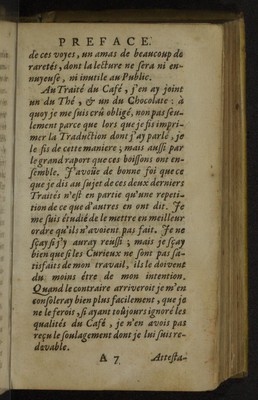 PREFACE.
de ces voyes, un amas de beaucoup de
raretés, dont la lecture ne sera ni en-
nuyeuse, ni inutile au Public.
Au Traité du Café, j'en ay joint
un du Thé, & un du Chocolate: à
quoy je me suis crû obligé, non pas seu-
lement parce que lors que je fis impri-
mer la Traduction dont j'ay parlé, je
le fis de cette maniere; mais aussi par
le grand raport que ces boissons ont en-
semble. J'avoüe de bonne foi que ce
que je dis au sujet de ces deux derniers
Traités n'est en partie qu'une repeti-
tion de ce que d'autres en ont dit. Je
me suis étudié de le mettre en meilleur
ordre qu'ils n'avoient pas fait. Je ne
sçay si j'y auray reussi; mais je sçay
bien que si les Curieux ne sont pas sa-
tisfaits de mon travail, ils le doivent
du moins étre de mon intention.
Quand le contraire arriveroit je m'en
consoleray bien plus facilement, que je
ne le ferois, si ayant toûjours ignoré les
qualités du Café, je n'en avois pas
reçu le soulagement dont je lui suis re-
devable.
A 7 Attesta-